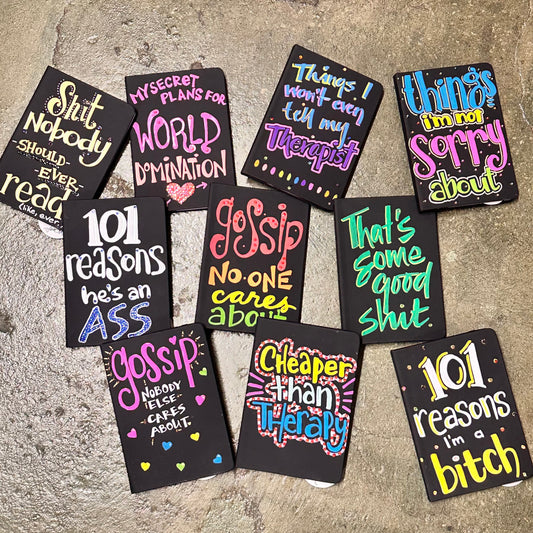 Shit
Nobody
SHOULD
EVER
read
(like, ever.
MY SECRET
PLANS FOR
WORLD
DOMINATION
Things I
won't even
tell my
Therapist
things
i'm not
sorry
about
101
reasons
he's an
ASS
gossip
NO-ONE
cares
about
That's
some
good
shit.
gossip
NOBODY
ELSE
CARES
ABOUT.
CHEAPER
than
THERAPY
101
reasons
i'm a
bitch